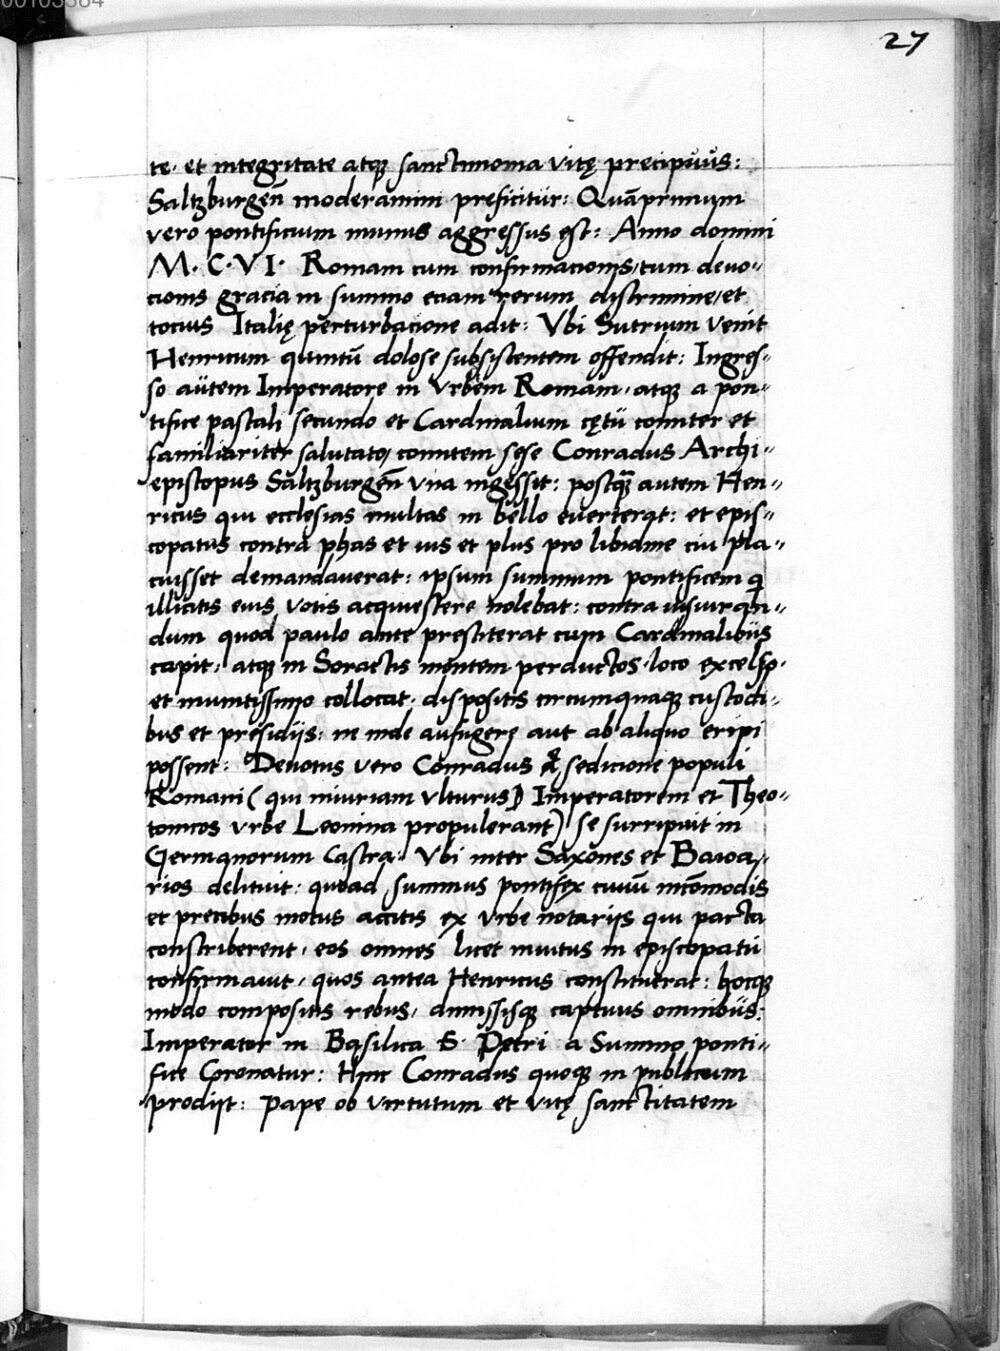 00103384
27
te· et integritate atque sanctimonia vitę precipuus:
Saltzburgeñ moderamini preficitur: Quãprimum
vero pontificium munus aggressus est: Anno domini
M·C·VI· Romam cum confirmacionis, tum devo-
cionis gracia in summo eciam rerum discrimine, et
tocius Italię perturbacione adit: Vbi Sutrium venit
Henricum quintũ dolose subsistentem offendit: Ingres-
so autem Imperatore in Vrbem Romam, atque a pon-
tifice pascali secundo et Cardinalium cętu comiter et
familiariter salutato, comitem sese Conradus Archi-
episcopus Saltzburgeñ vna ingessit: postquã autem Hen-
ricus qui ecclesias multas in bello everterat: et epis-
copatus contra phas et ius et plus pro libidine cui pla-
cuisset demandauerat: ipsum summum pontificem qui
illicitis eius votis acquiescere nolebat: contra iusiuran-
dum quod paulo ante prestiterat cum Cardinalibus
capit, atque in Soractis montem perductos, loco excelso·
et munitissimo collocat, dispositis circumquaque custodi-
bus et presidijs: ne inde aufugere aut ab aliquo eripi
possent: Deuotus vero Conradus a sedicione populi
Romani (qui iniuriam vlturus Imperatorem et Theo-
tonicos vrbe Leonina propulerant) se surripuit in
Germanorum castra: Vbi inter Saxones et Bawa-
rios delituit: quoad summus pontifex ciuiũ incõmodis
et precibus motus accitis ex vrbe notarijs qui pacta
conscriberent, eos omnes licet inuitus in episcopatu
confirmauit, quos antea Henricus constituerat: hocque
modo compositis rebus, dimissisque captiuis omnibus:
Imperator in Basilica S· Petri a Summo ponti-
fice Coronatur: Hinc Conradus quoque in publicum
prodijt: pape ob virtutum et vitę sanctitatem